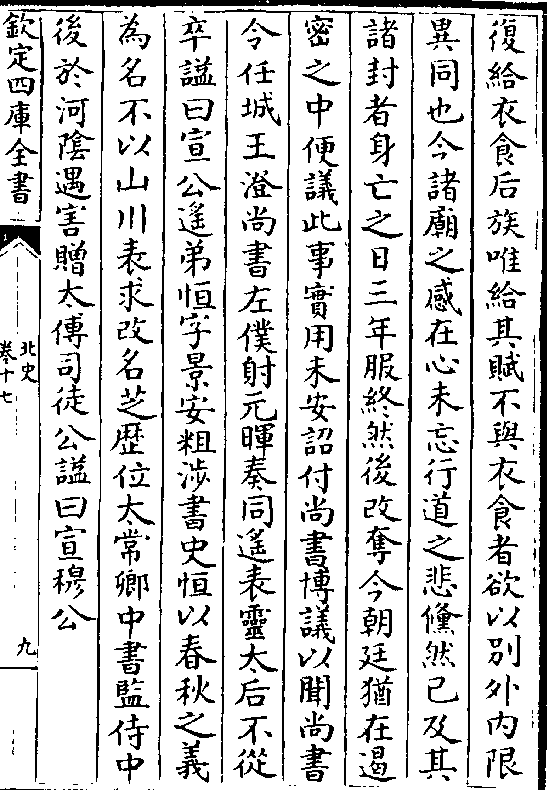 復給衣食后族唯給其賦不與衣食者欲以别外内限
異同也今諸廟之感在心未忘行道之悲儵然已及其
諸封者身亡之日三年服終然後改奪今朝廷猶在遏
密之中便議此事實用未安詔付尚書博議以聞尚書
令任城王澄尚書左僕射元暉奏同遙表靈太后不從
卒謚曰宣公遙弟恒字景安粗涉書史恒以春秋之義
為名不以山川表求改名芝歴位太常卿中書監侍中
後於河陰遇害贈太傅司徒公謚曰宣穆公
欽定四庫全書
北史
卷十七
九